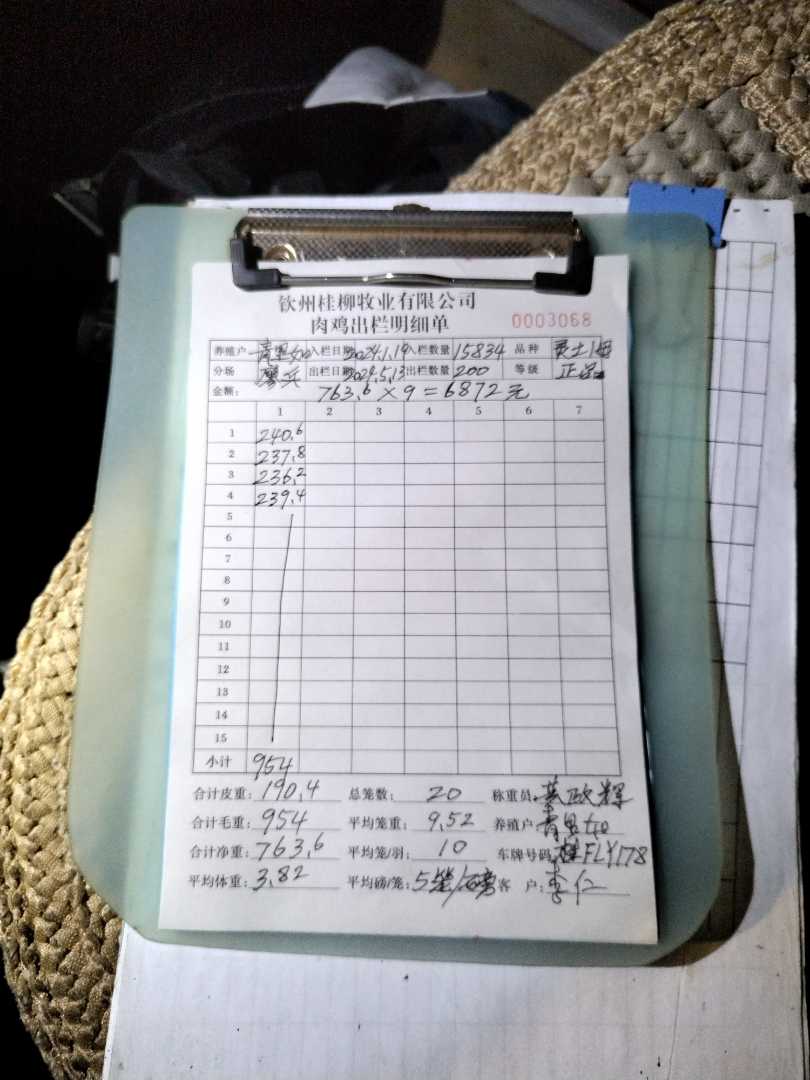 钦州桂柳牧业有限公司
肉鸡出栏明细单 0003068
养殖户 入栏日期 2024.1.19 入栏数量 15834 品种
分场 出栏日期 2024.5.13 出栏数量 200 等级 正品
金额： 763.6×9=6872元
1 2 3 4 5 6 7
1 240.6
2 237.8
3 236.2
4 239.4
5
6
7
8
9
10
11
12
13
14
15
小计 954
合计皮重：190.4 总笼数：20 称重员：
合计毛重：954 平均笼重：9.52 养殖户：
合计净重：763.6 平均笼/羽：10 车牌号码：桂FLY178
平均体重：3.82 平均磅/笼：5笼/磅 客户：李仁